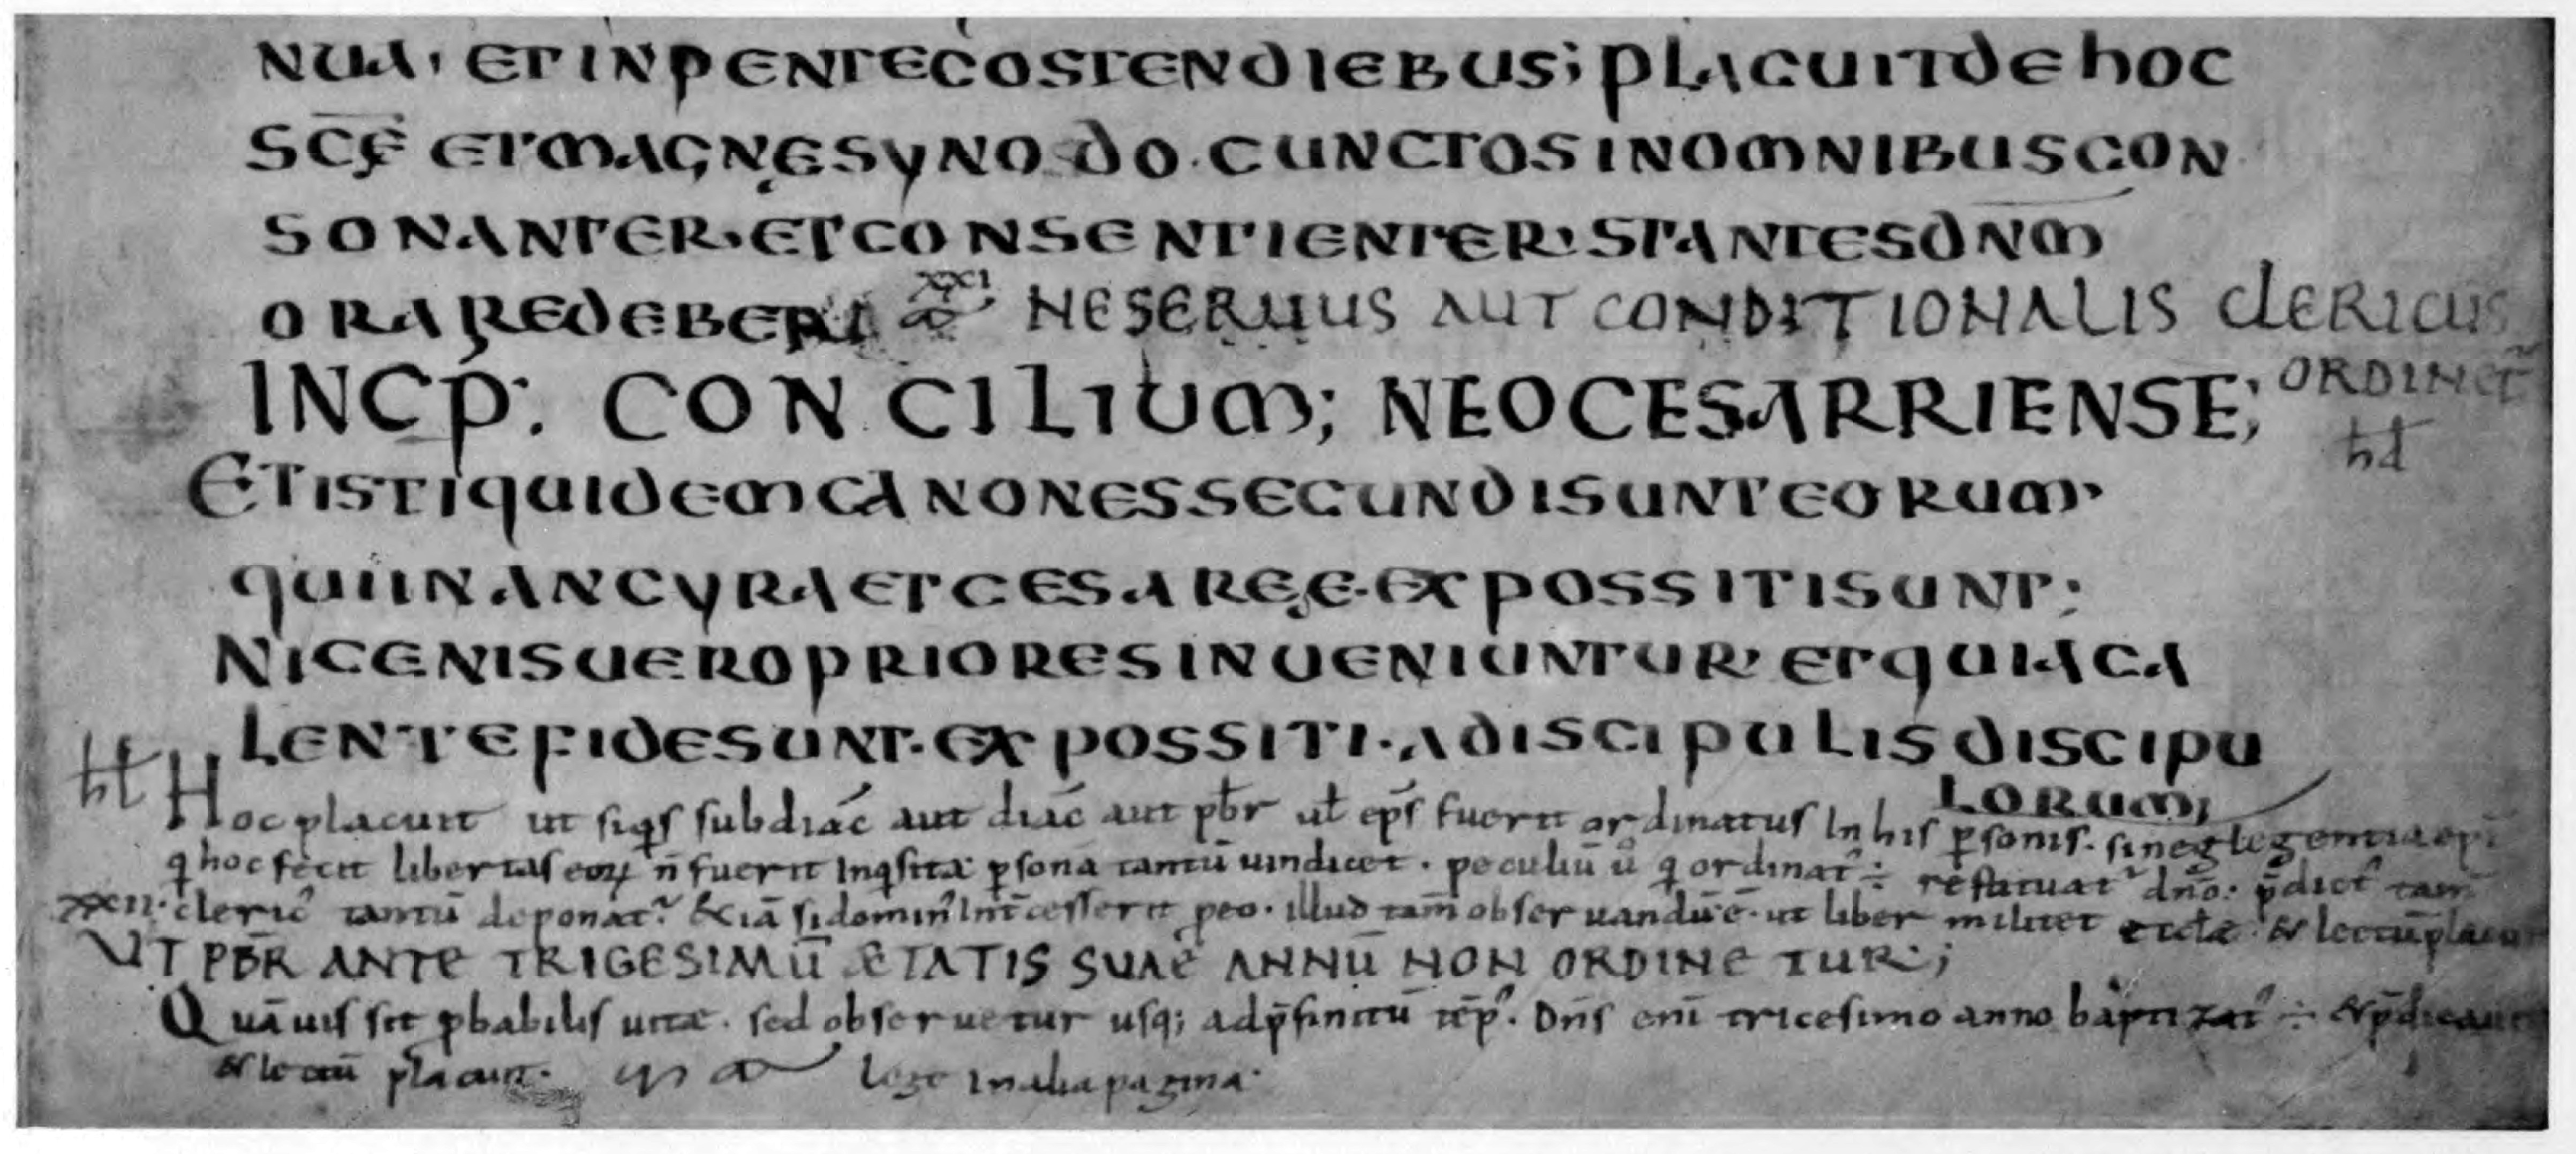 NUA, ET IN PENTECOSTEN DIEBUS; PLACUIT DE HOC
SCĒ ET MAGNĘ SYNODO. CUNCTOS IN OMNIBUS CON
SONANTER. ET CONSENTIENTER. STANTES DNM̄
ORARE DEBERE XXI NE SERUUS AUT CONDITIONALIS CLERICUS
ORDINET᷑
INCP̄: CONCILIUM; NEOCESARRIENSE;
hd
ET ISTI QUIDEM CANONES SECUNDI SUNT EORUM,
QUI IN ANCYRA ET CESAREĘ. EXPOSSITI SUNT;
NICENIS UERO PRIORES INUENIUNTUR, ET QUIA CA
LENTE FIDE SUNT. EXPOSSITI. A DISCIPULIS DISCIPU
LORUM;
ht Hoc placuit ut siq̇s subdiac̄ aut diac̄ aut pb̄r ul̄ ep̄s fuerit ordinatus in his p̱sonis. si neglegentia ep̄i
q hoc fecit libertas eoꝝ n̄ fuerit inq̇sita p̱sona tantū uindicet. peculiū ū q ordinat᷑ ÷ restituat᷑ dn̄o. p̄dict᷒ tam̄
XXII. cleric᷒ tantū deponat᷑ &iā si domin᷒ int̄cesserit p eo. illud tam̄ obseruandū ē. ut liber militet & lectū placuit
UT PB̄R ANTE TRIGESIMŪ ÆTATIS SUAE ANNŪ NON ORDINETUR;
Quāuis sit ꝓbabilis uitæ. sed obseruetur usq; ad p̄finitū tēp᷒. Dn̄s eni᷒ tricesimo anno baptizat᷒ ÷ & p̄dicauit
& lectū placuit. lege in alia pagina.